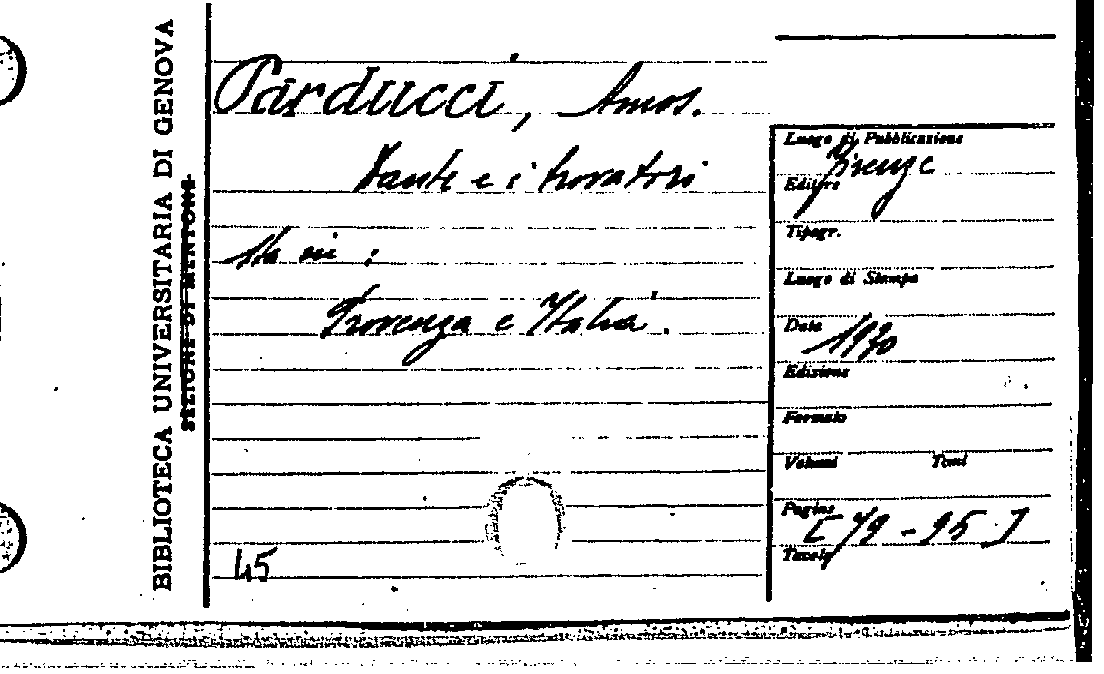 BIBLIOTECA UNIVERSITARIA DI GENOVA
Parducci, Amos.
Dante e i trovatori
Sta in:
Provenza e Italia.
45
Luogo di Pubblicazione
Firenze
Editore
Tipogr.
Luogo di Stampa
Data
1930
Edizione
Formato
Volumi Tomi
Pagine
[79-95.]
Tavole